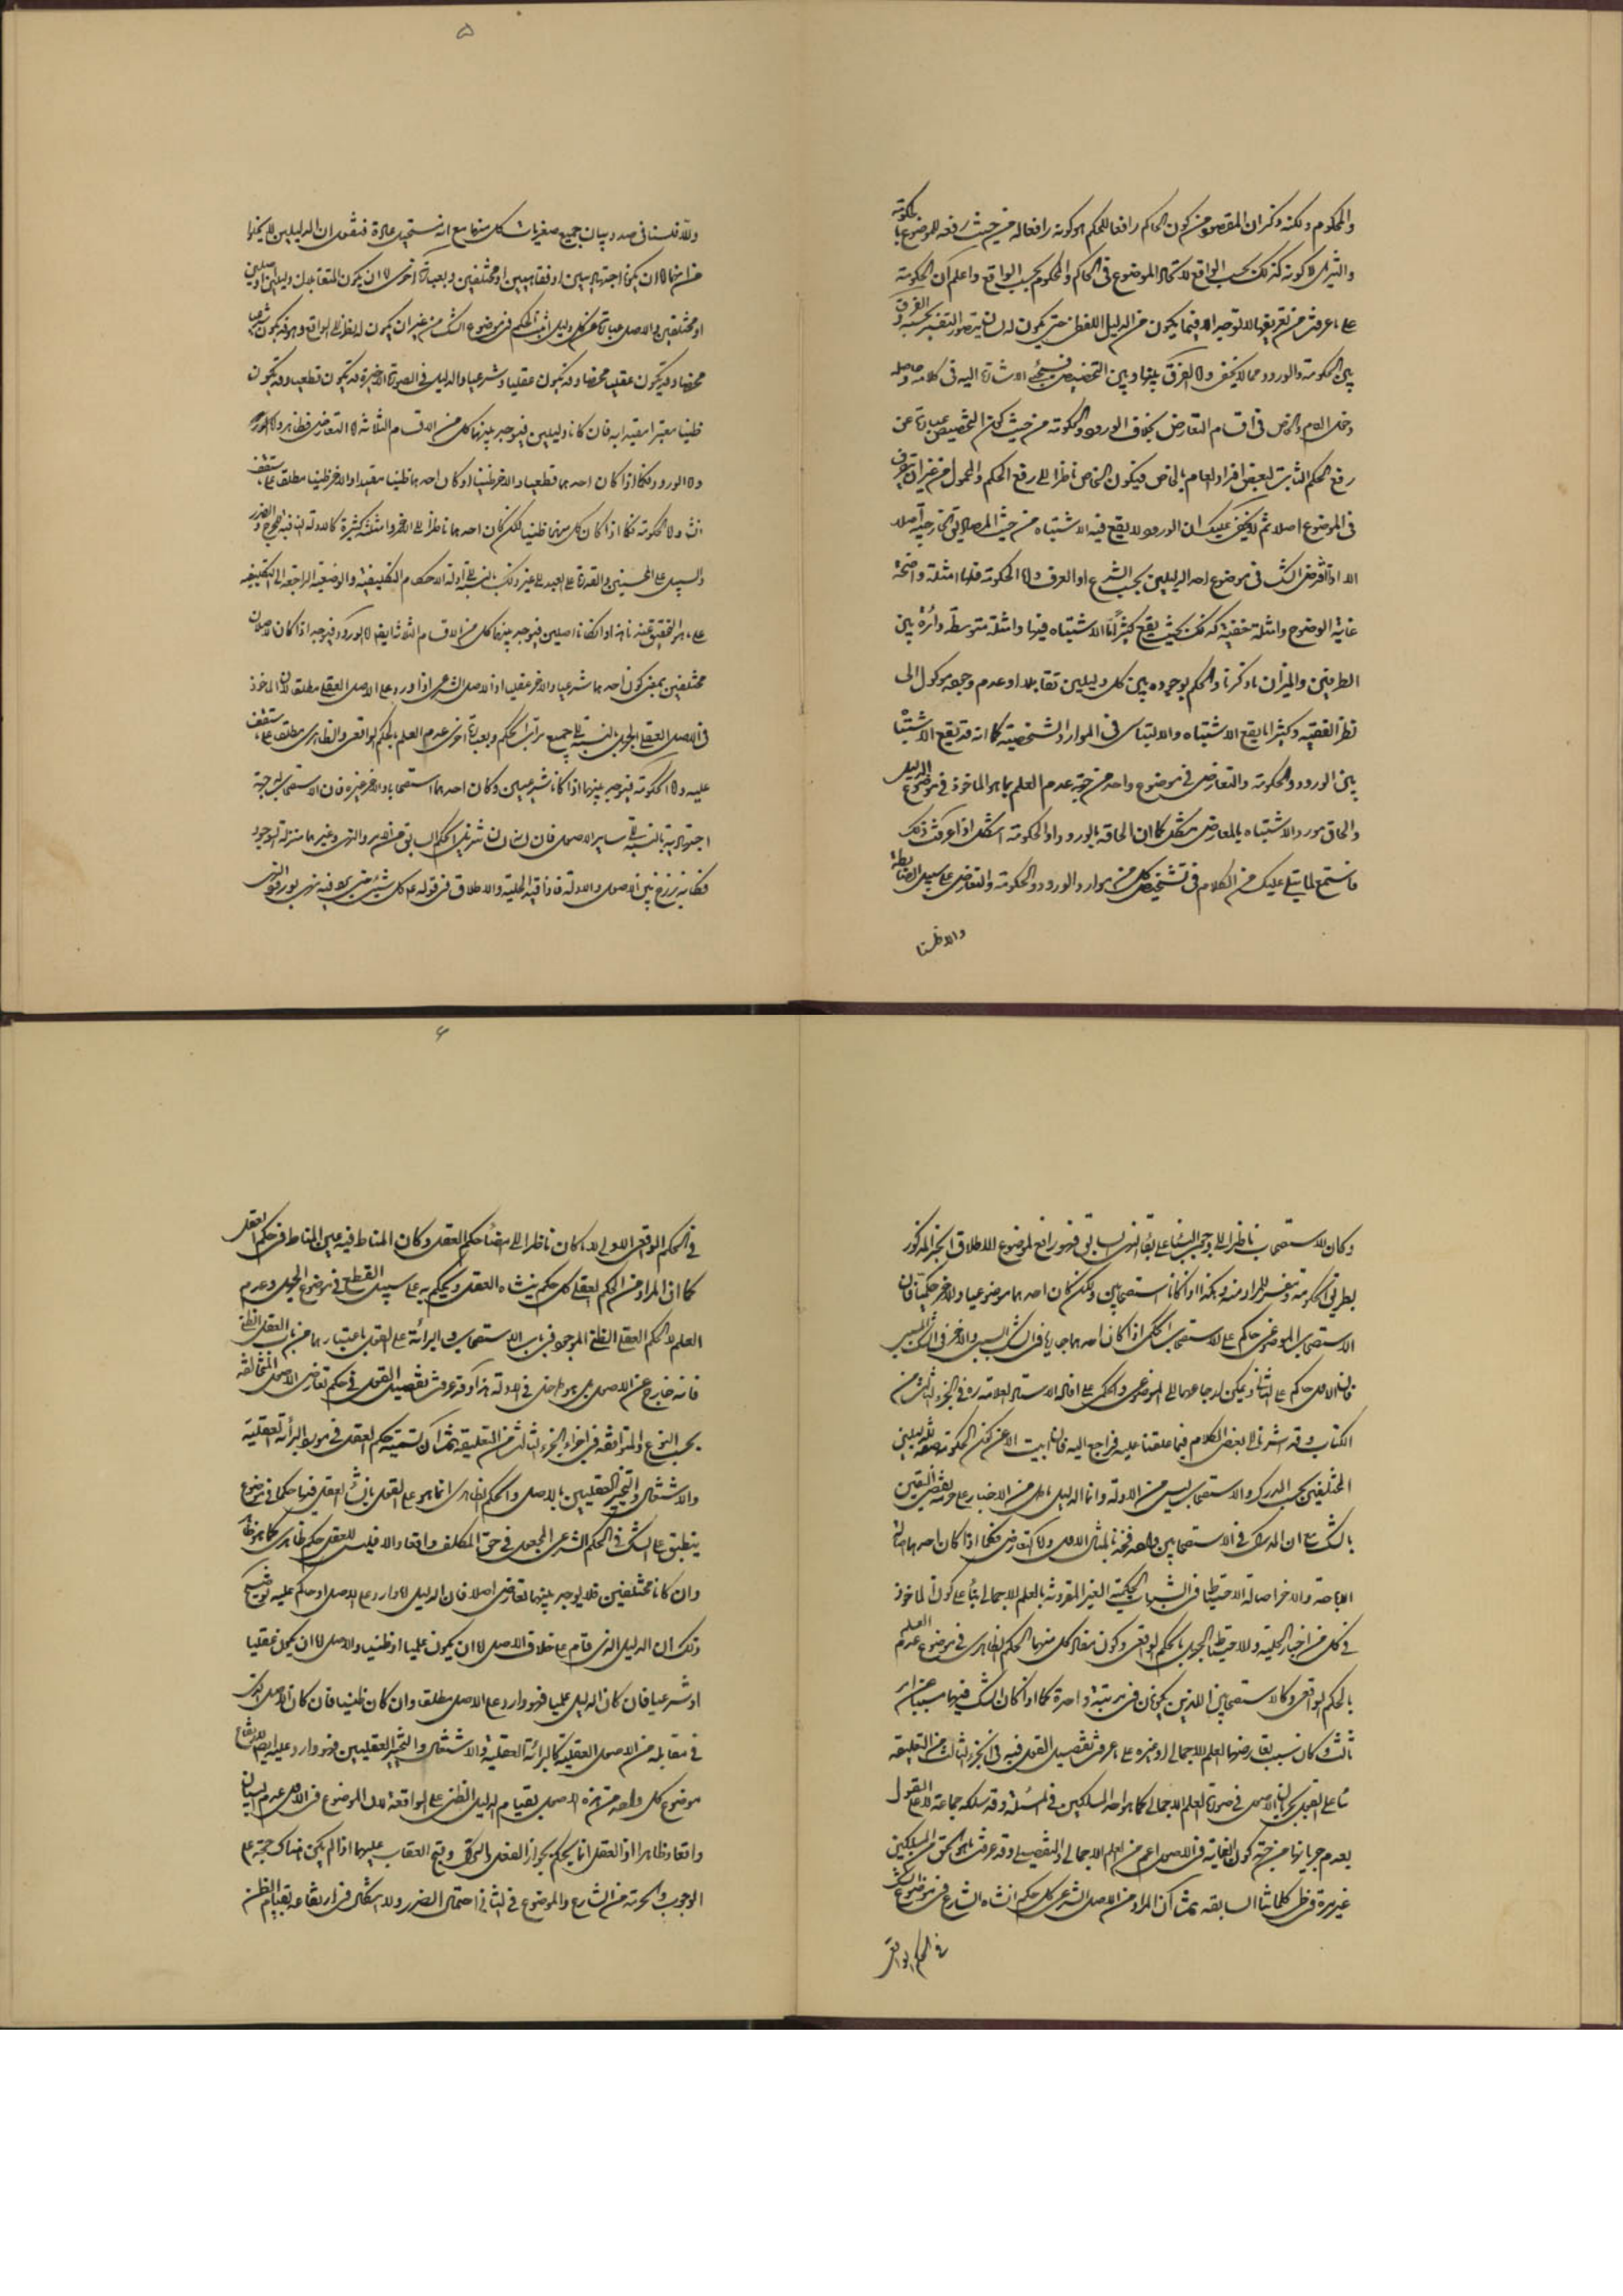 والمحكوم ولكنه ذكر ان المقصود من كون الحاكم رافعا للحكم هو كونه رافعا له من حيث رفعه للموضوع بالحكومة
والتنزيل لا كونه كذلك بحسب الواقع لاتحاد الموضوع في الحاكم والمحكوم بحسب الواقع واعلم ان الحكومة
على ما عرفت من تعريفها لا توجد الا فيما يكون من الدليل اللفظي حتى يكون له لسان يتصور التفسير بحسبه والفرق
بين الحكومة والورود مما لا يخفى واما الفرق بينها وبين التخصيص فسيجيء الاشارة اليه في كلامه وحاصله
دخل العام والخاص في اقسام التعارض بخلاف الورود والحكومة من حيث كون التخصيص عبارة عن
رفع الحكم الثابت لبعض افراد العام بالخاص فيكون الخاص ناظرا الى رفع الحكم والمحمول من غير ان يتعرض
في الموضوع اصلا ثم لا يخفى عليك ان الورود لا يقع فيه الاشتباه من حيث المصاديق الخارجية اصلا
الا اذا فرض الشك في موضوع احد الدليلين بحسب الشرع او العرف واما الحكومة فلها امثلة واضحة
غاية الوضوح وامثلة خفية كذلك بحيث يقع كثيرا ما الاشتباه فيها وامثلة متوسطة دائرة بين
الطرفين والميزان ما ذكرنا والحكم بوجوده بين كل دليلين تقابلا او عدم وجوده موكول الى
نظر الفقيه وكثيرا ما يقع الاشتباه والالتباس في الموارد الشخصية كما انه قد يقع الاشتباه
بين الورود والحكومة والتعارض في موضوع واحد من جهة عدم العلم بما هو الماخوذ في موضوع الدليل
والحاق مورد الاشتباه بالتعارض مشكل كما ان الحاقه بالورود او الحكومة اشكل اذا عرفت ذلك
فاستمع لما يتلى عليك من الكلام في تشخيص كل من موارد الورود والحكومة والتعارض على سبيل الضابطة
والا فلسنا
۵
والا فلسنا في صدد بيان جميع صغريات كل منها مع انه مستحيل عادة فنقول ان الدليلين لا يخلوا
من انهما اما ان يكونا اجتهاديين او فقاهيين او مختلفين وبعبارة اخرى اما ان يكون المتقابلان دليلين او اصلين
او مختلفين والاصل عبارة عن كل دليل اثبت الحكم في موضوع الشك من غير ان يكون له نظر الى الواقع وهو قد يكون شرعيا
محضا وقد يكون عقليا محضا وقد يكون عقليا وشرعيا والدليل في الصورة الاخيرة قد يكون قطعيا وقد يكون
ظنيا معتبرا مقيدا به فان كانا دليلين فيوجد بينهما كل من الاقسام الثلاثة اما التعارض فظاهر
واما الورود فكما اذا كان احدهما قطعيا والاخر ظنيا او كان احدهما ظنيا مقيدا والاخر ظنيا مطلقا على ما ستقف
واما الحكومة فكما اذا كان كل منهما ظنيا لكن كان احدهما ناظرا الى الاخر وامثلته كثيرة كالادلة النافية للحرج والضرر
والسبيل على المحسنين والقدرة على العبد الى غير ذلك بالنسبة الى ادلة الاحكام التكليفية والوضعية الراجعة الى التكليفية
على ما هو التحقيق عندنا واذا كانا اصلين فيوجد بينهما كل من الاقسام الثلاثة ايضا اما الورود فيوجد اذا كان الاصلان
مختلفين بمعنى كون احدهما شرعيا والاخر عقليا اذ الاصل الشرعي اذا ورد على الاصل العقلي مطلقا لان الماخوذ
في الاصل العقلي الجهل بالنسبة الى جميع مراتب الحكم وبعبارة اخرى عدم العلم بالحكم الواقعي والظاهري مطلقا على ما ستقف
عليه واما الحكومة فيوجد بينهما اذا كانا شرعيين وكان احدهما استصحابا والاخر غيره فان الاستصحاب له جهة
اجتهادية بالنسبة الى ساير الاصول فان لسانه لسان تنزيل الحكم السابق من الامر والنهي وغيرهما منزلة الموجود
فكانه برزخ بين الاصول والادلة فاذا قيد الحلية والاطلاق في قوله ع كل شيء مطلق حتى يرد فيه نهي بورود النهي
وكان الاستصحاب ناظرا الى وجوب البناء على بقاء النهي السابق فهو رافع لموضوع الاطلاق في الخبر المذكور
بطريق الحكومة وتفسير للمراد منه وهكذا اذا كانا استصحابين ولكن كان احدهما موضوعيا والاخر حكميا فان
الاستصحاب الموضوعي حاكم على الاستصحاب الحكمي اذا كان احدهما جاريا في الشك السببي والاخر في الشك المسببي
فان الاول حاكم على الثاني ويمكن ارجاعهما الى الموضوعي والحكمي على ما افاده الاستاد العلامة ره في الجزء الثالث من
الكتاب وقد اشرنا الى بعض الكلام فيما علقنا عليه فراجع اليه فان ابيت الا عن كون الحكومة صفة للدليلين
المختلفين بحسب المدرك والاستصحاب ليس من الادلة وانما الدليل ما دل من الاخبار على حرمة نقض اليقين
بالشك مع ان المدرك في الاستصحابين واحد فخذ بالمثال الاول واما التعارض فكما اذا كان احدهما اصالة
الاباحة والاخر اصالة الاحتياط في الشبهات الحكمية الغير المقرونة بالعلم الاجمالي بناء على كون الماخوذ
في كل من اخبار الحلية والاحتياط الجهل بالحكم الواقعي وكون مفاد كل منهما الحكم الظاهري في موضوع عدم العلم
بالحكم الواقعي وكالاستصحابين اللذين يكونان في مرتبة واحدة كما اذا كان الشك فيهما مسببا عن امر
ثالث وكان سبب تعارضهما العلم الاجمالي او غيره على ما عرفت تفصيل القول فيه في الجزء الثالث من التعليقة
بناء على القول بجريان الاصول في صورة العلم الاجمالي كما هو احد المسلكين في المسئلة وقد سلكه جماعة لا على القول
بعدم جريانها من جهة كون الغاية في الاصول اعم من العلم الاجمالي والتفصيلي وقد عرفت ما هو الحق من المسلكين
غير مرة في ظل كلماتنا السابقة ثم ان المراد من الاصل الشرعي كل حكم انشاه الشارع في موضوع الشك
في الحكم الواقعي
۶
في الحكم الواقعي الاولي الا ما كان ناظرا الى امضاء حكم العقل وكان المناط فيه عين المناط في حكم العقل
كما ان المراد من الحكم العقلي كل حكم ينشاه العقل ويحكم به على سبيل القطع في موضوع الجهل وعدم
العلم لا الحكم العقلي الظني الموجود في باب الاستصحاب والبرائة على القول باعتبارهما من باب العقل الظني
فانه خارج عن الاصول بل هو داخل في الادلة هذا وقد عرفت تفصيل القول في حكم تعارض الاصول المتخالفة
بحسب النوع والمتوافقة في اجزاء الجزء الثالث من التعليقة ثم ان تسمية حكم العقل في موارد البرائة العقلية
والاشتغال والتخيير العقليين بالاصل والحكم الظاهري انما هو على القول بانشاء العقل فيها حكما في موضوع
ينطبق على الشك في الحكم الشرعي المجعول في حق المكلف واقعا والا فليس للعقل حكم ظاهري كما هو ظاهر
وان كانا مختلفين فلا يوجد بينهما تعارض اصلا فان الدليل اما وارد على الاصل او حاكم عليه توضيح
ذلك ان الدليل الذي قام على خلاف الاصل اما ان يكون علميا او ظنيا والاصل اما ان يكون عقليا
او شرعيا فان كان الدليل علميا فهو وارد على الاصل مطلقا وان كان ظنيا فان كان الاصل الذي
في مقابله من الاصول العقلية كالبرائة العقلية والاشتغال والتخيير العقليين فهو وارد عليه ايضا لارتفاع
موضوع كل واحد من هذه الاصول بقيام الدليل الظني على الواقعة لان الموضوع في الاول عدم البيان
واقعا وظاهرا اذ العقل انما يحكم بجواز الفعل والترك وقبح العقاب عليهما اذا لم يكن هناك حجة على
الوجوب والحرمة من الشارع والموضوع في الثاني احتمال الضرر ولا اشكال في ارتفاعه بقيام الظن